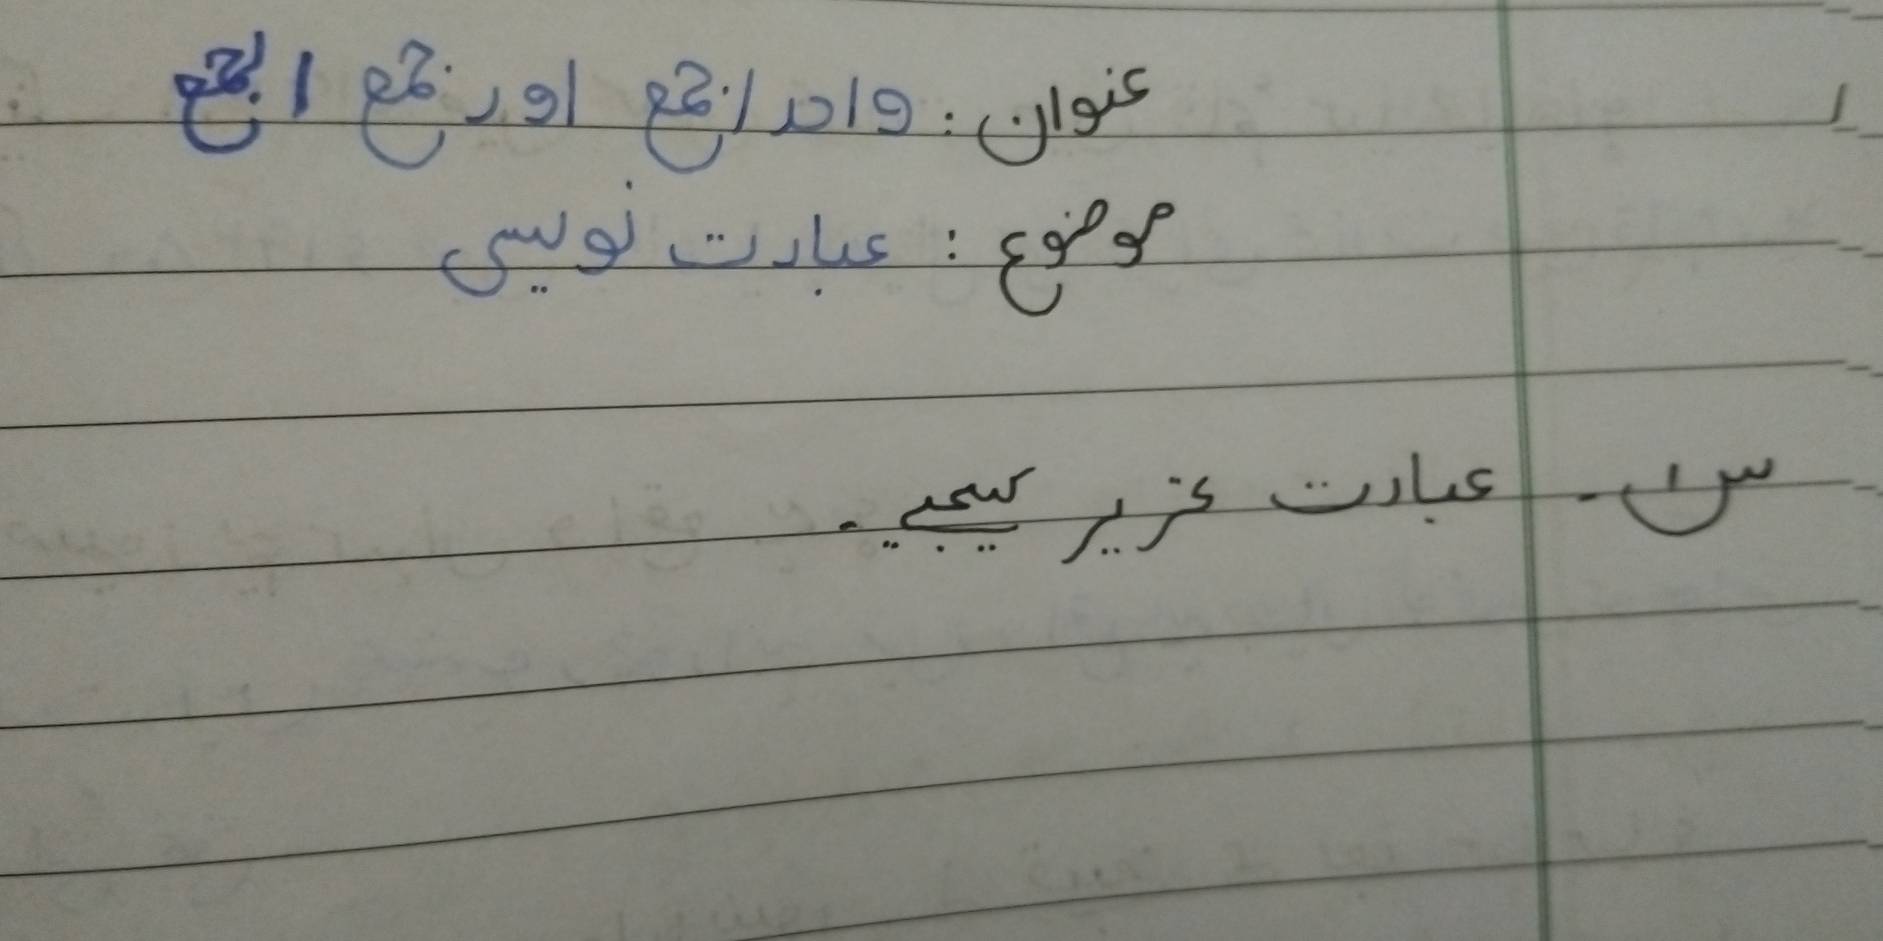 عنوان: واحد / جمع اور جمع الجمع
موضوع: عبارت نویسی
س۱۔ عبارت تحریر کیجیے۔